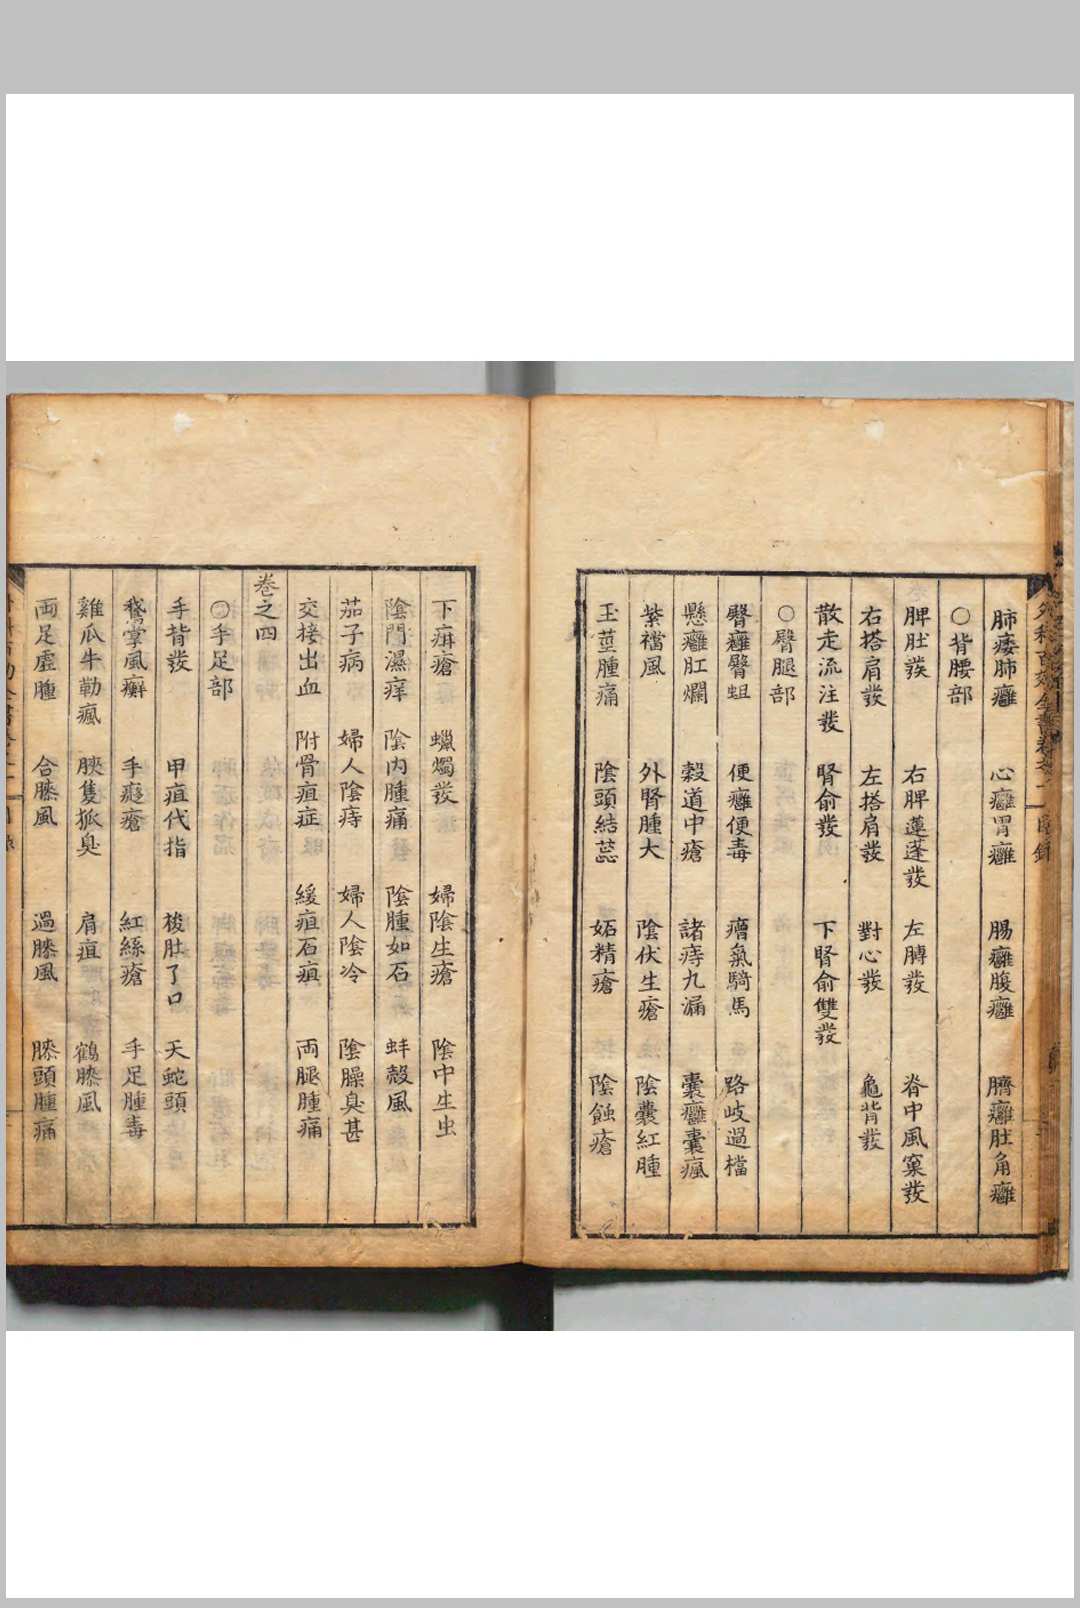 肺痿肺癰　心癰胃癰　腸癰腹癰　臍癰肚角癰
○背腰部
脾肚發　右脾蓮蓬發　左膊發　脊中風窠發
右搭肩發　左搭肩發　對心發　龜背發
散走流注發　腎俞發　下腎俞雙發
○臀腿部
臀癰臀蛆　便癰便毒　㿈氣騎馬　路岐過檔
懸癰肛爛　穀道中瘡　諸痔九漏　囊癰囊瘋
紫襠風　外腎腫大　陰伏生瘡　陰囊紅腫
玉莖腫痛　陰頭結蕊　妬精瘡　陰蝕瘡
下疳瘡　蠟燭發　婦陰生瘡　陰中生虫
陰門濕痒　陰內腫痛　陰腫如石　蚌殼風
茄子病　婦人陰痔　婦人陰冷　陰臊臭甚
交接出血　附骨疽症　緩疽石疽　両腿腫痛
卷之四
○手足部
手背發　甲疽代指　梭肚了口　天蛇頭
鵞掌風癬　手癡瘡　紅絲瘡　手足腫毒
雞爪牛勒瘋　腋隻狐臭　肩疽　鶴膝風
両足虛腫　合膝風　過膝風　膝頭腫痛